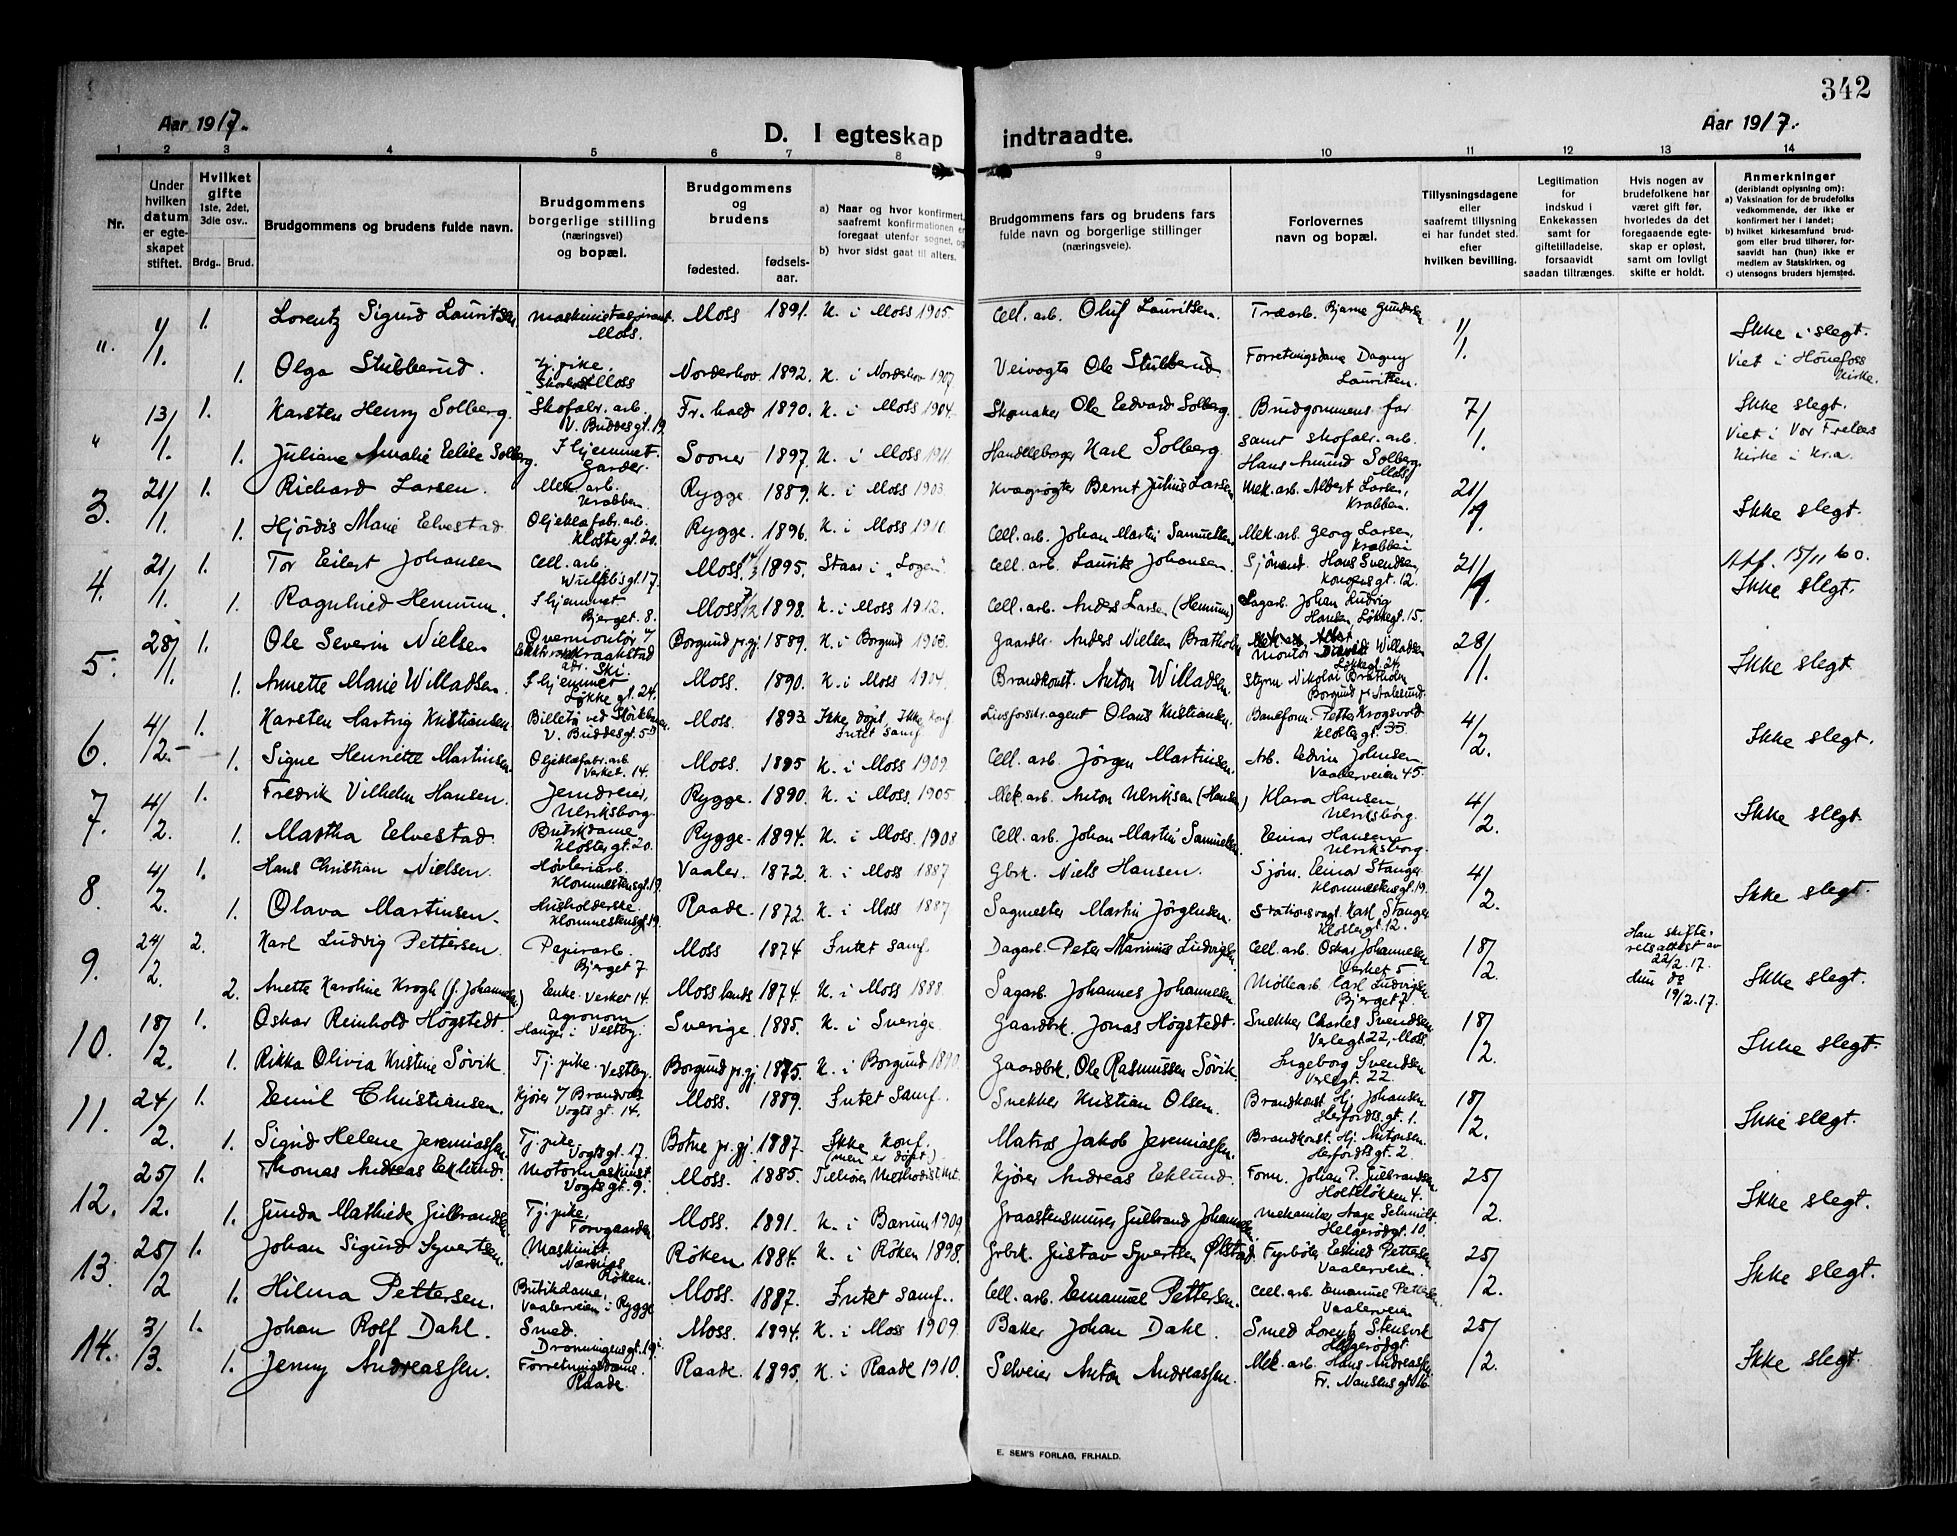 342
Aar 1917.
D. I egteskap indtraadte.
Aar 1917.
1 2 3 4 5 6 7 8 9 10 11 12 13 14
Nr.
Under hvilken datum er egteskapet stiftet.
Hvilket gifte 1ste, 2det, 3die osv..
Brdg.. Brud.
Brudgommens og brudens fulde navn.
Brudgommens borgerlige stilling (næringsvei) og bopæl.
Brudgommens og brudens
fødested. fødselsaar.
a) Naar og hvor konfirmert, saafremt konfirmationen er foregaat utenfor sognet, og
b) hvor sidst gaat til alters.
Brudgommens fars og brudens fars fulde navn og borgerlige stillinger (næringsveie).
Forlovernes navn og bopæl.
Tillysningsdagene eller saafremt tillysning ei har fundet sted. efter hvilken bevilling.
Legitimation for indskud i Enkekassen samt for giftetilladelse, forsaavidt saadan tiltrænges.
Hvis nogen av brudefolkene har været gift før, hvorledes da det foregaaende egteskap er opløst, samt om lovligt skifte er holdt.
Anmerkninger (deriblandt oplysning om):
a) Vaksination for de brudefolks vedkommende, der ikke er konfirmert her i landet;
b) hvilket kirkesamfund brudgom eller brud tilhører, forsaavidt han (hun) ikke er medlem av Statskirken, og
c) utensogns bruders hjemsted.
". 1/1. 1. Lorentz Sigurd Lauritsen maskinistaspirant. Moss. Moss 1891. K. i Moss 1905. Cell. arb. Oluf Lauritsen. Træarb. Bjarne Gundersen 1/1. Ikke i slegt.
1. Olga Stubberud. Tj. pike. Moss Norderhov. 1892. K. i Norderhov 1907. Veivogter Ole Stubberud. Forretningsdame Dagny Lauritsen. Viet i Hønefoss Kirke.
" 13/1. 1. Karsten Henry Solberg. Skofabr. arb. V. Buddesgt. 19. Fr. hald 1890. K. i Moss 1904. Skomaker Ole Edvard Solberg. Brudgommens far 7/1. Ikke slegt.
1. Juliane Amalie Elise Solberg. I hjemmet. Garder. Sooner 1897. K. i Moss 1911 Karl Solberg samt skofabr. arb. Hans Amund Solberg. Moss. Viet i Vor Frelsers Kirke i Kr.a.
3. 21/1. 1. Richard Larsen. Mek. arb. Krabben. Rygge 1889. K. i Moss 1903. Kvægrøgter Bernt Julius Larsen Mek. arb. Albert Larsen, Krabben. 21/1. Ikke slegt.
1. Hjørdis Marie Elvestad. Oljeklæfabr. arb. Klostergt. 20. Rygge. 1896. K. i Moss 1910. Cell. arb. Johan Martin Samuelsen Mek. arb. Georg Larsen, Krabben
4. 21/1. 1. Tor Eilert Johansen Cell. arb. Wulfsbgt. 17. Moss. 1895. Staar i "Logen" Cell. arb. Laurits Johansen. Sjømand Hans Svendsen, Kongensgt. 12. 21/1. Att. 15/11 60. Ikke slegt.
1. Ragnhild Hennum. I hjemmet. Bjerget. 8. Moss 1898. K. i Moss 1912. Cell. arb. Anders Larsen (Hennum) Sagarb. Johan Ludvig Hansen, Løkkegt. 15.
5. 28/1. 1. Ole Severin Nielsen Kraakstad adr. Ski. Borgund pr.gj. 1889. K. i Borgund 1903. Gaardbr. Anders Nielsen Bratholm Willadsen Løkkegt. 24. 28/1. Ikke slegt.
1. Annette Marie Willadsen. I hjemmet Løkkegt. 24. Moss. 1890. K. i Moss 1904. Brandkonst. Anton Willadsen. Styrm. Nikolai Bratholm Borgund pr. Aalesund.
6. 4/2. 1. Karsten Hartvig Kristiansen. V. Buddesgt. 5 Moss. 1893 Ikke døpt, Ikke konf. Intet samf. Livsforsikr. agent Olaus Kristiansen. Baneform. Petter Krogsvold Klostergt. 33. 4/2. Ikke slegt.
1. Signe Henriette Martinsen. Oljeklæfabr. arb. Verket. 14. Moss. 1895 K. i Moss 1909. Cell. arb. Jørgen Martinsen. Arb. Edvin Johnsen Vaalerveien 45.
7. 4/2. 1. Fredrik Vilhelm Hansen. Jerndreier, Ulriksborg. Rygge. 1890. K. i Moss. 1905 Mek. arb. Anton Ulriksen (Hansen) Klara Hansen, Ulriksborg. 4/2. Ikke slegt.
1. Martha Elvestad. Butikdame Klostergt. 20. Rygge. 1894. K. i Moss 1908 Cell. arb. Johan Martin Samuelsen. Einar Hansen Ulriksborg.
8. 4/2. 1. Hans Christian Nielsen. Høvleriarb. Klommestensgt. 19. Vaaler. 1872. K. i Moss 1887 Gbrk. Niels Hansen. Sjøm. Einar Stanger Klommestensgt. 19. 4/2. Ikke slegt.
1. Olava Martinsen. Husholderske. Klommestensgt. 19. Raade. 1872. K. i Moss 1887 Sagmester Martin Jørgensen. Stationsvagt. Karl Stanger Klostergt. 12.
9. 24/2. 2. Karl Ludvig Pettersen. Papirarb. Bjerget 7 Moss 1874 Intet samf. Dagarb. Peter Marinius Ludvigsen. Cell. arb. Oskar Johannesen Verket 5 18/2. Han skifteretsattest av 22/2. 17. Hun do 19/2. 17. Ikke slegt.
2. Anette Karoline Krogh (f. Johannesen) Enke. Verket 14. Moss lands 1874. K. i Moss 1888 Sagarb. Johannes Johannesen. Møllearb. Carl Ludvigsen Bjerget 7
10. 18/2. 1. Oskar Reinhold Høgstedt. Agronom Hauger i Vestby. Sverige. 1885. K. i Sverige. Gaardbrk. Jonas Høgstedt. Snekker Charles Svendsen Verlegt 22, Moss. 18/2. Ikke slegt.
1. Rikka Olivia Kristine Søvik. Tj. pike. Vestby. Borgund pr. gj. 1875. K. i Borgund 1890. Gaardbrk. Ole Rasmussen Søvik. Ingeborg Svendsen Verlegt. 22.
11. 24/2. 1. Emil Christiansen. Kjører v/ Brandvæs. Vogtsgt. 14. Moss. 1889. Intet Samf. Snekker Kristian Olsen. Brandkonst. Hj. Johansen Herfordtsgt. 1. 18/2. Ikke slegt.
1. Sigrid Helene Jeremiassen. Tj. pike Vogtsgt. 17. Botne pr. gj. 1887. Ikke konf. (men er døpt) Matros Jakob Jeremiassen. Brandkonst. Hj. Antonsen. Herfordtsgt. 2.
12. 25/2. 1. Thomas Andreas Eklund. Motormaskinist Vogtsgt. 9. Moss. 1885. Tilhører Methodistkirk. Kjører Andreas Eklund. Form. Johan P. Gulbrandsen Holteløkken 4. 25/2. Ikke slegt.
1. Gunda Mathilde Gulbrandsen. Tj. pike, Torvgaarden Moss. 1891. K. i Bærum 1909. Graastensmurer Gulbrand Johannesen. Mekaniker Aage Schmidt. Helgerødgt. 10.
13. 25/2 1. Johan Sigurd Syvertsen. Maskinist. Nærsnes Røken. Røken 1884. K. i Røken 1898. Grbrk. Gustav Syvertsen Ølstad. Fyrbøter Edvind Pettersen Vaalerveien. 25/2. Ikke slegt.
1. Hilma Pettersen. Butikdame, Vaalerveien i Rygge Moss. 1887. Intet samf.. Cell. arb. Emanuel Pettersen. Cell. arb. Emanuel Pettersen. Vaalerveien
14. 3/3. 1. Johan Rolf Dahl. Smed. Dronningensgt. 19. Moss. 1894. K. i Moss 1909. Baker Johan Dahl. Smed Lorentz Stensvik Helgerødgt. 25/2. Ikke slegt.
1. Jenny Andreassen. Forretningsdame. Raade. Raade. 1895. K. i Raade 1910. Selveier Anton Andreassen. Mek. arb. Hans Andreassen Fr. Nansensgt. 16.
E. SEM'S FORLAG, FR.HALD.